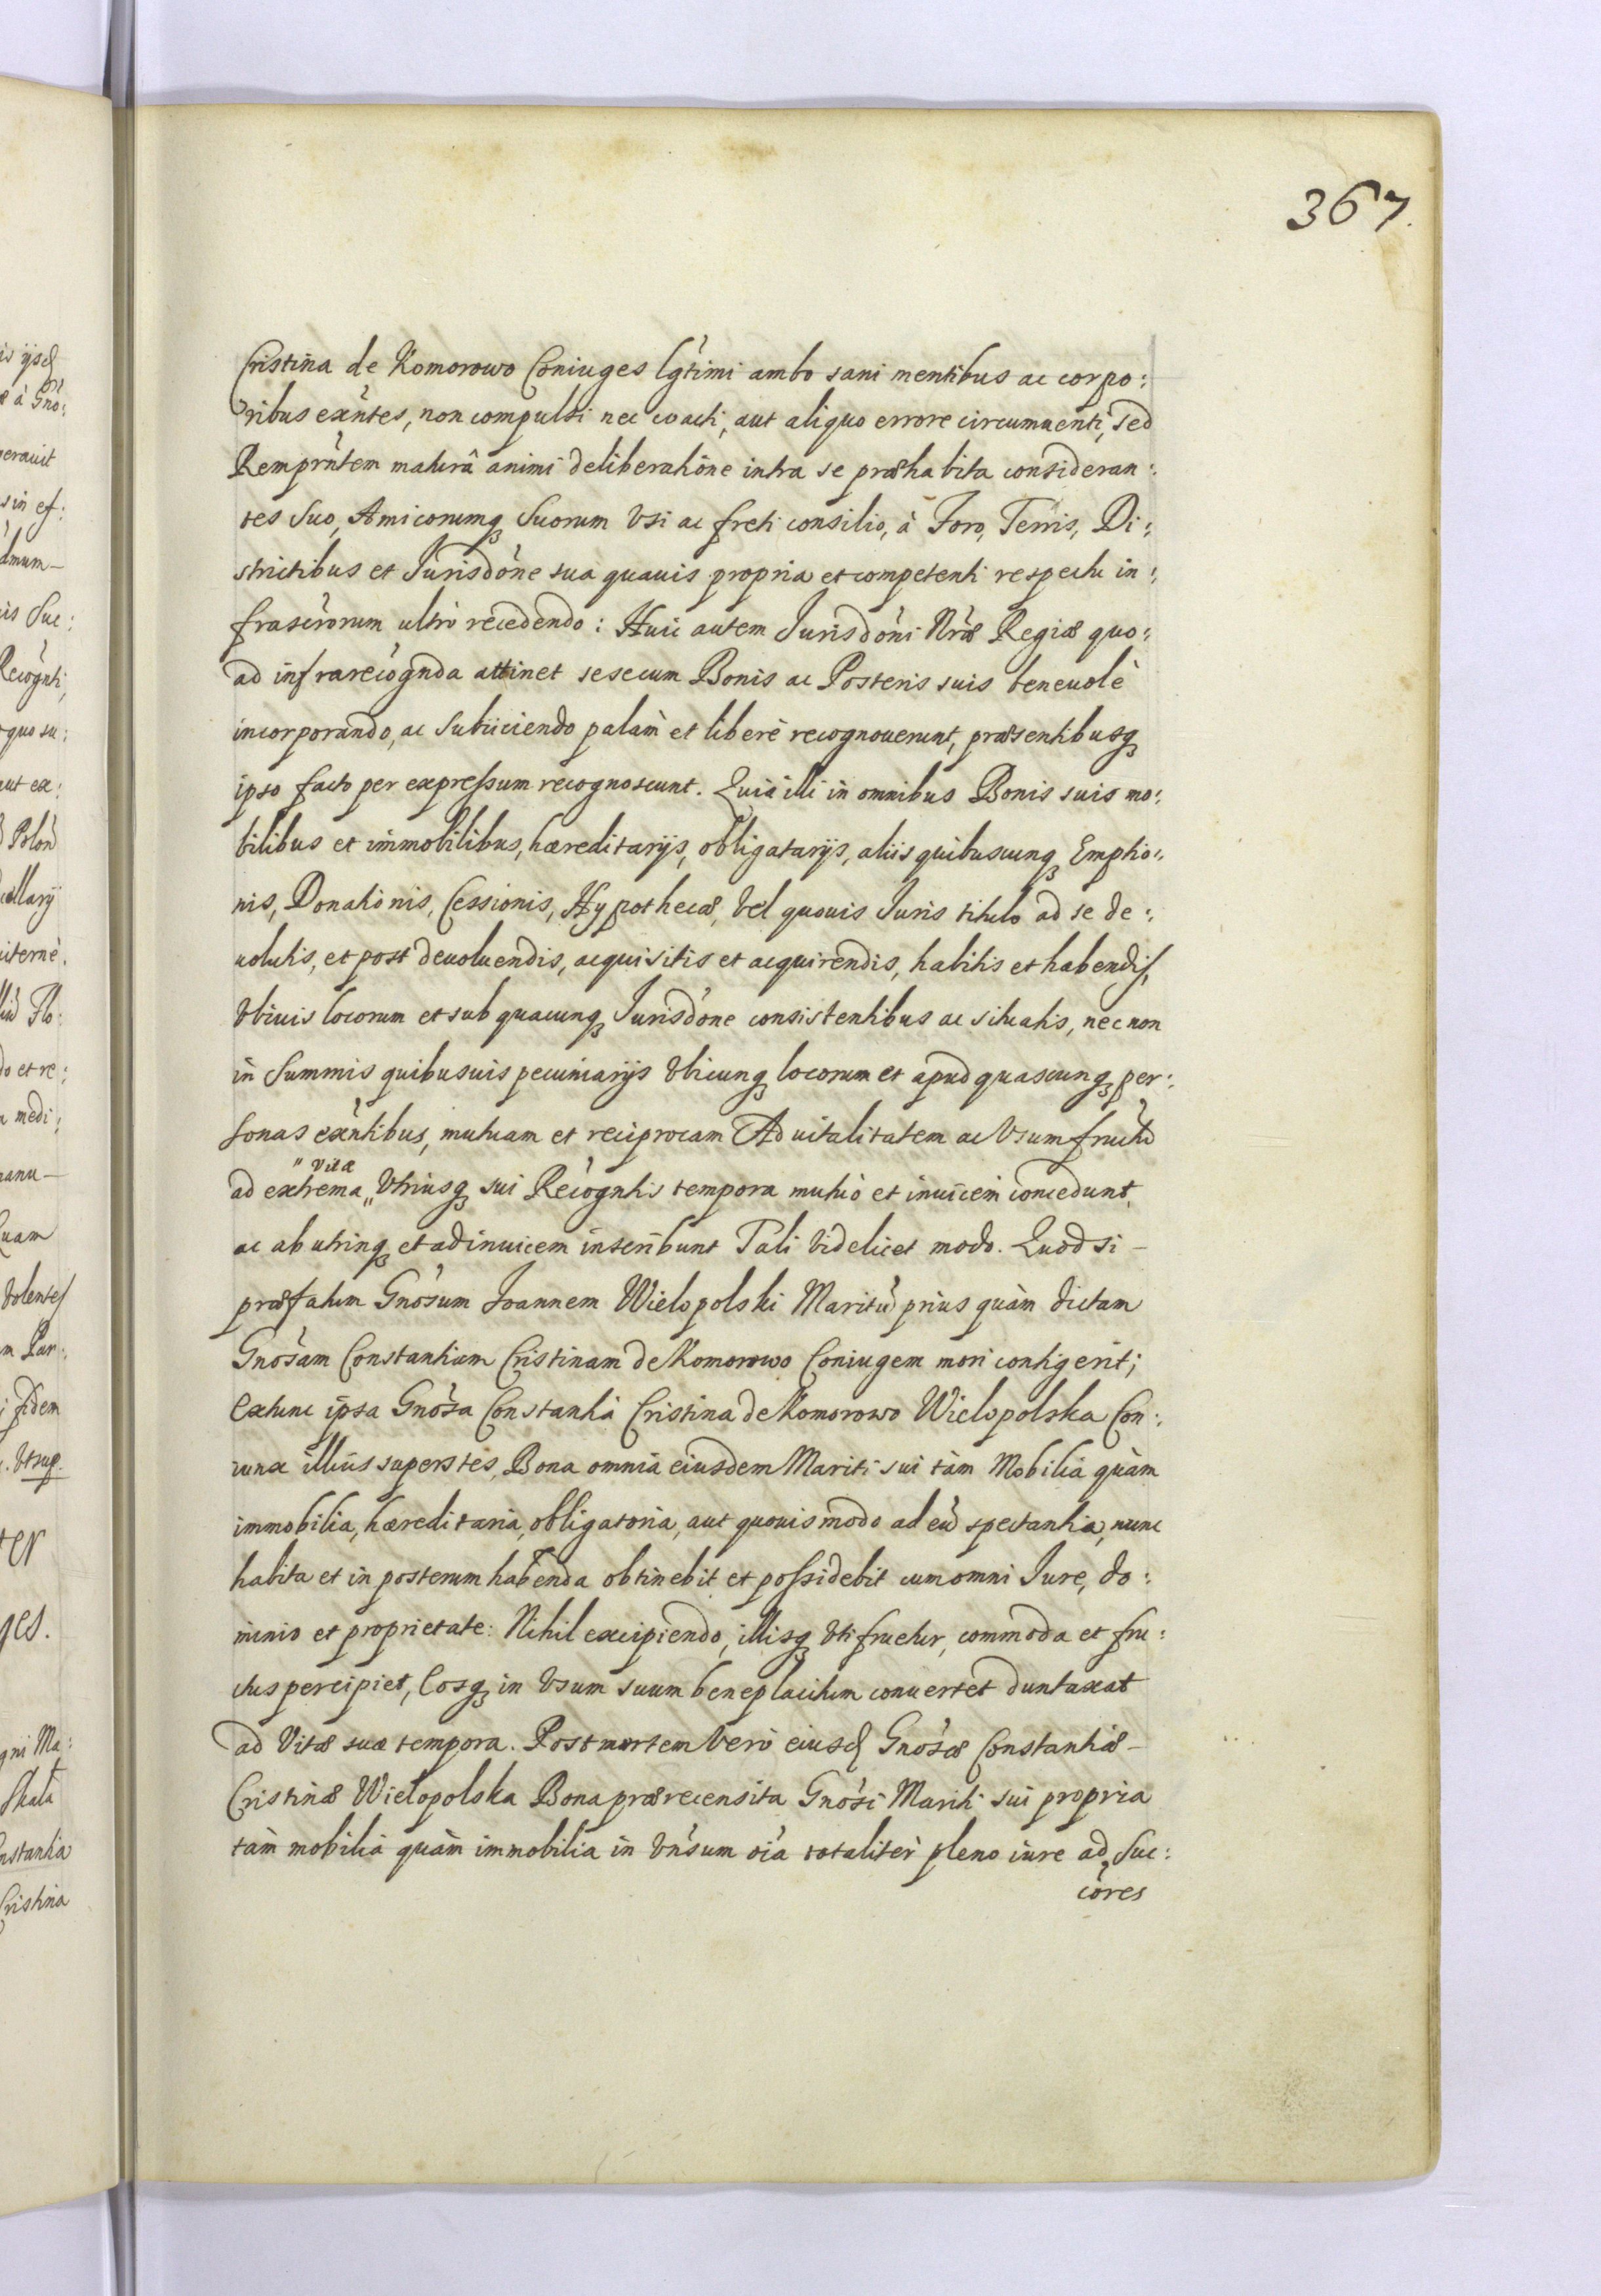 367.
Cristina de Komorowo Coniuges lgt̀imi ambo sani mentibus ac corpo:
ribus exǹtes, non compulsi nec coacti, aut aliquo errore circumuenti, sed
Rem prǹtem maturâ animi deliberatione intra se præhabita consideran:
tes suo, Amicorumq₃ suorum vsi ac freti consilio, à Foro, Terris, Di:
strictibus et Jurisdòne sua quauis propria et competenti respectu in:
frascr̀orum ultrò recedendo: Huic autem Jurisdòni Nr̀æ Regiæ quo:
ad infrarecògnda attinet sese cum Bonis ac Posteris suis beneuolè
incorporando, ac subiiciendo palàm et liberè recognouerunt, præsentibusq₃
ipso facto per expressum recognoscunt. Quià illi in omnibus Bonis suis mo:
bilibus et immobilibus, hæreditarijs, obligatarijs, aliis quibuscunq₃ Emptio:
nis, Donationis, Cessionis, Hypothecæ, Vel quouis Juris titulo ad se de:
uolutis, et post deuoluendis, acquisitis et acquirendis, habitis et habendis,
Vbiuis locorum et sub quacunq₃ Jurisdòne consistentibus ac situatis, nec non
in Summis quibusuis pecuniarijs Vbicunq₃ locorum et apud quascunq₃ per:
sonas exǹtibus, mutuam et reciprocam Aduitalitatem ac Vsumfructũ
" vitæ
ad extrema " Vtriusq₃ sui Recògntis tempora mutuò et inuicem concedunt,
ac ab utrinq₃ et adinuicem inscribunt Tali videlicet modo. Quod si –
præfatum Gnòsum Joannem Wielopolski Maritũ prius quàm dictam
Gnòsam Constantiam Cristinam de Komorowo Coniugem mori contigerit;
Extunc ipsa Gnòsa Constantia Cristina de Komorowo Wielopolska Con:
iunx illius superstes, Bona omnia eiusdem Mariti sui tàm Mobilia quàm
immobilia, hæreditaria, obligatoria, aut quouis modo ad eũ spectantia, nunc
habita et in posterum habenda obtinebit et possidebit cum omni Jure, do:
minio et proprietate: Nihil excipiendo, illisq₃ Vtifruetur, commoda et fru:
ctus percipiet, Eosq₃ in Vsum suum beneplacitum conuertet duntaxat
ad Vitæ suæ tempora. Post mortem Verò eiusd Gnòsæ Constantiæ –
Cristinæ Wielopolska Bona prærecensita Gnòsi Mariti sui propria
tàm mobilia quàm immobilia in Vǹsum òia totalitèr pleno iure ad Suc:
còres